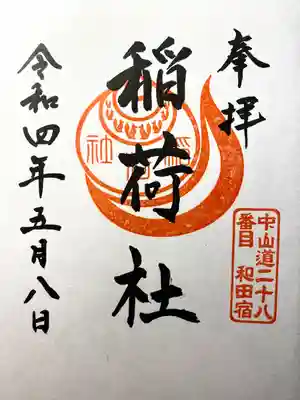 奉拝
中山道二十八
番目 和田宿
稲荷社
令和四年五月八日